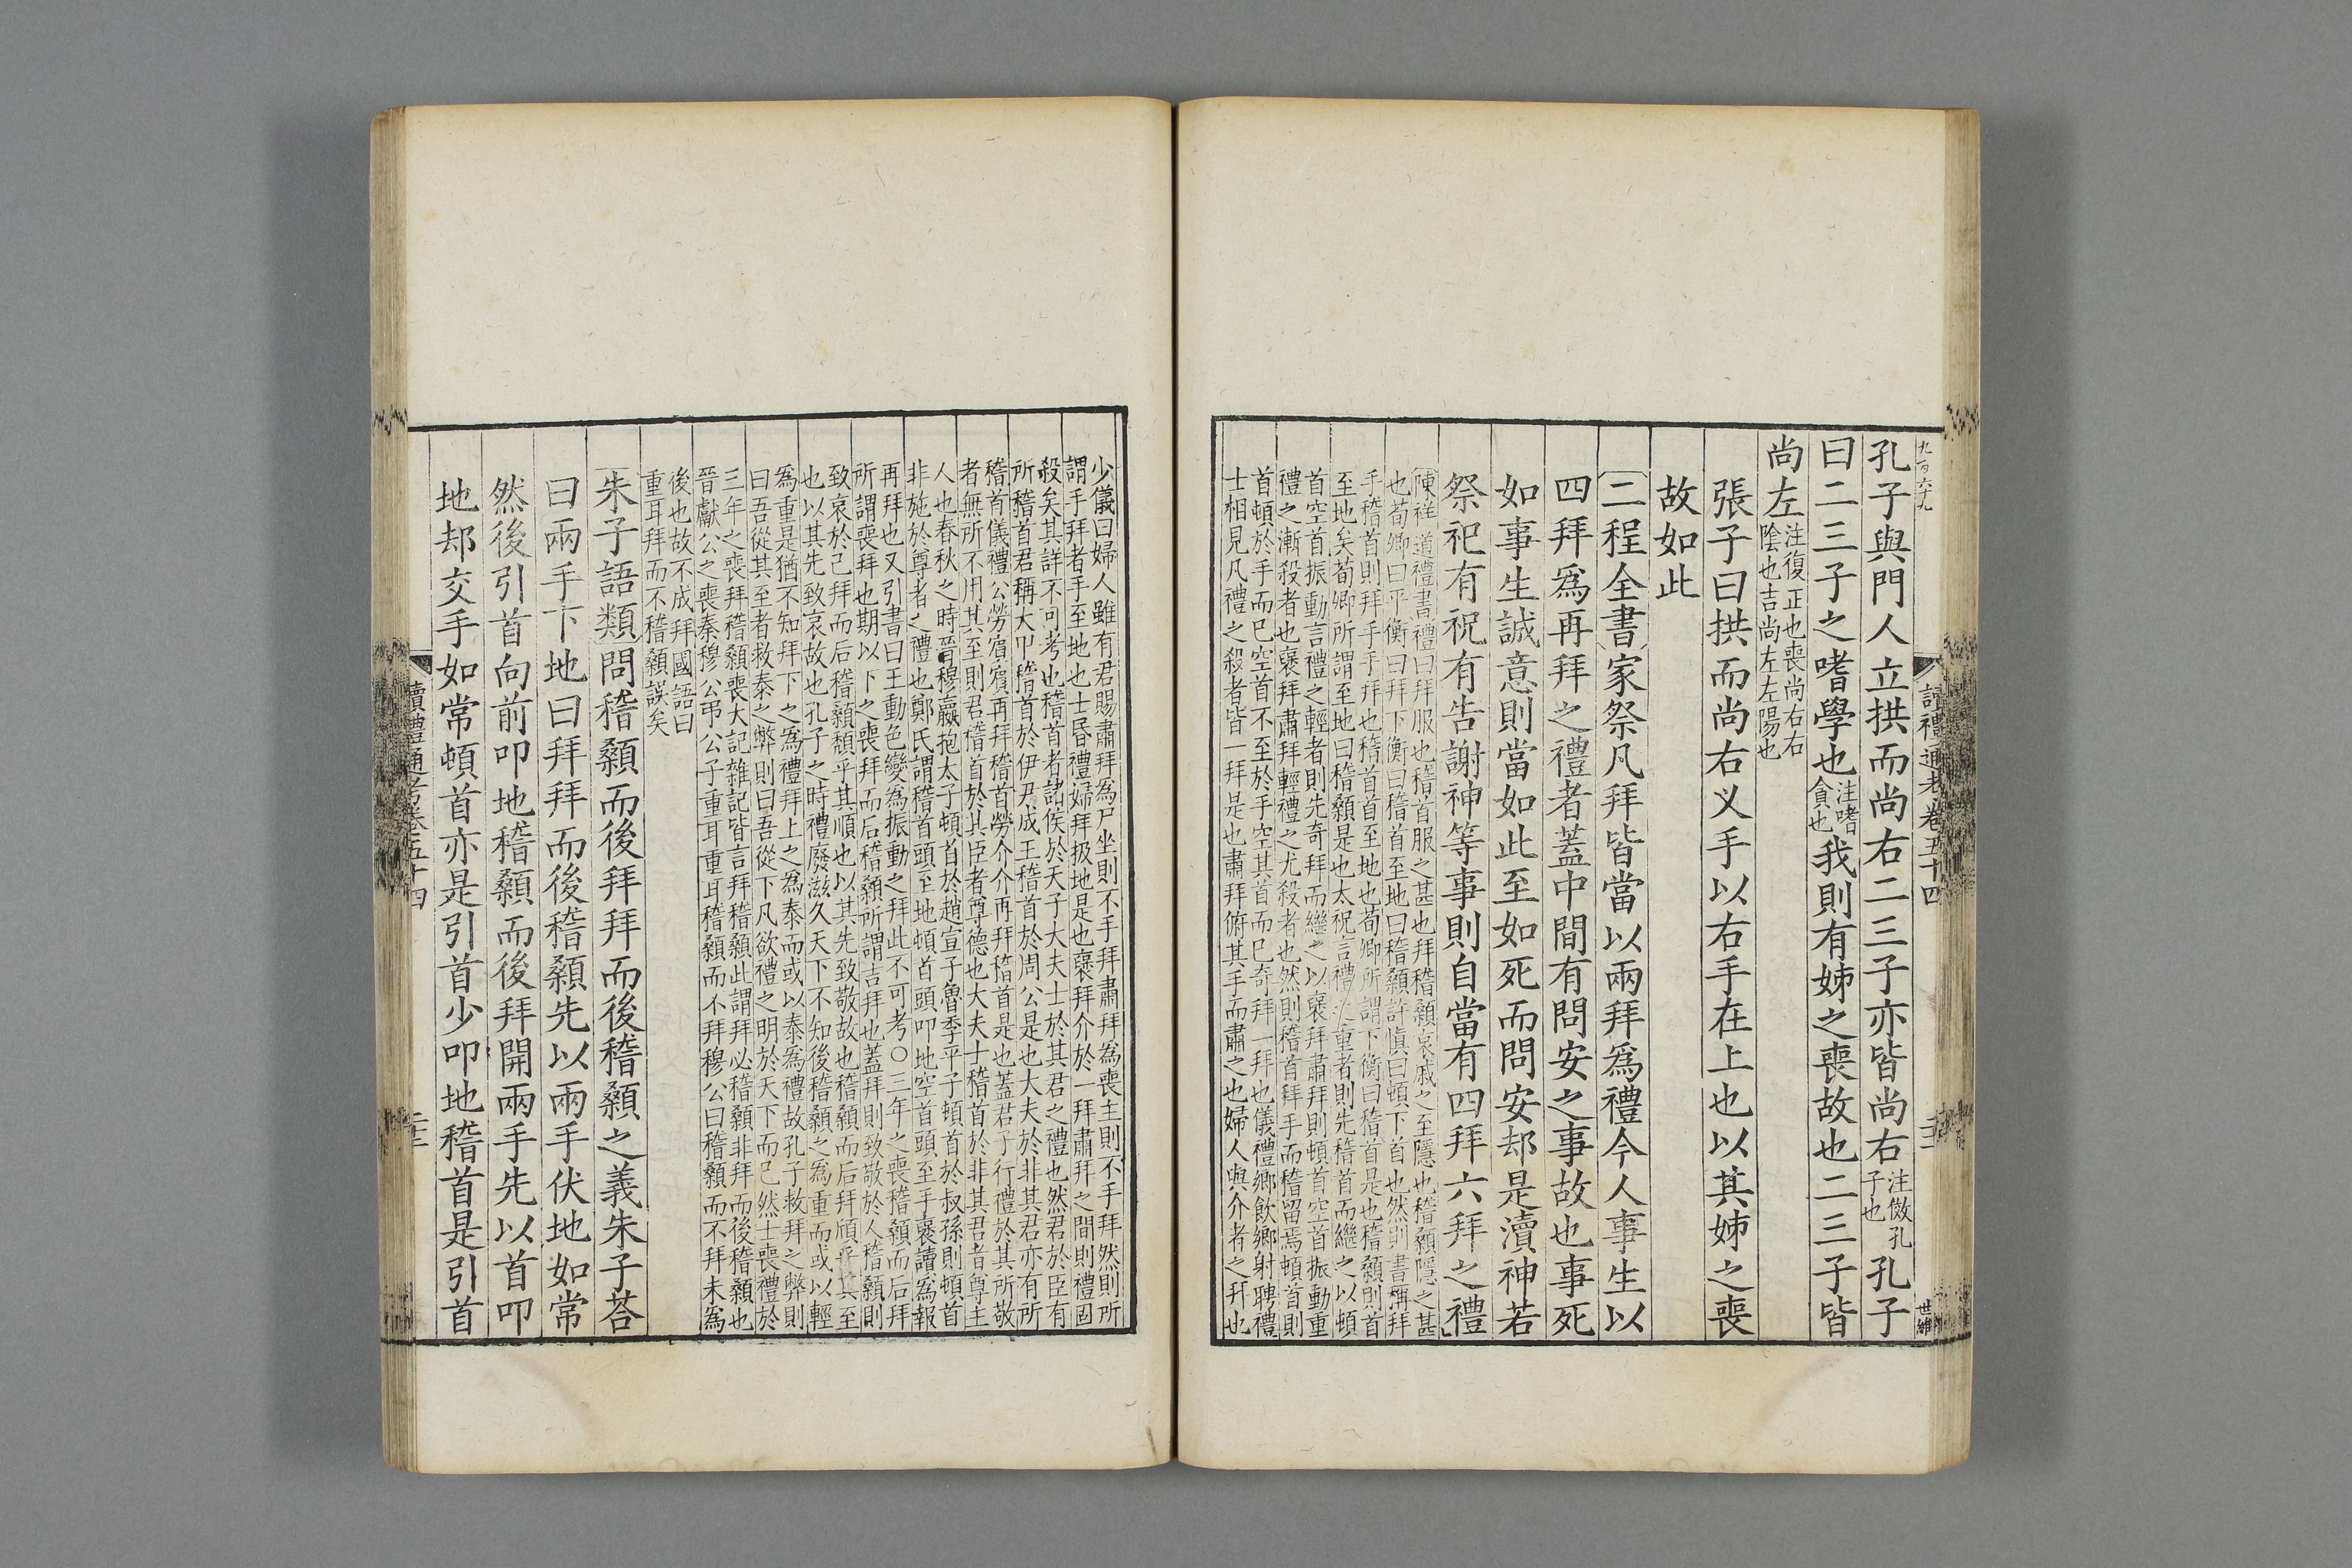 九百六十九
讀禮通考卷五十四
二十二
孔子與門人立拱而尚右二三子亦皆尚右注傚孔子也孔子
曰二三子之嗜學也注嗜貪也我則有姊之喪故也二三子皆
尚左注復正也喪尚右右陰也吉尚左左陽也
張子曰拱而尚右乂手以右手在上也以其姊之喪
故如此
二程全書家祭凡拜皆當以兩拜爲禮今人事生以
四拜爲再拜之禮者蓋中間有問安之事故也事死
如事生誠意則當如此至如死而問安却是瀆神若
祭祀有祝有告謝神等事則自當有四拜六拜之禮
陳祥道禮書禮曰拜服也稽首服之甚也拜稽顙哀戚之至隱也稽顙隱之甚
也荀卿曰平衡曰拜下衡曰稽首至地曰稽顙許愼曰頓下首也然則書稱拜
手稽首則拜手手拜也稽首首至地也荀卿所謂下衡曰稽首是也稽顙則首
至地矣荀卿所謂至地曰稽顙是也太祝言禮之重者則先稽首而繼之以頓
首空首振動言禮之輕者則先奇拜而繼之以褒拜肅拜則頓首空首振動重
禮之漸殺者也褒拜肅拜輕禮之尤殺者也然則稽首拜手而稽留焉頓首則
首頓於手而已空首不至於手空其首而已奇拜一拜也儀禮鄉飲鄉射聘禮
士相見凡禮之殺者皆一拜是也肅拜俯其手而肅之也婦人與介者之拜也
少儀曰婦人雖有君賜肅拜爲尸坐則不手拜肅拜爲喪主則不手拜然則所
謂手拜者手至地也士昏禮婦拜扱地是也褒拜介於一拜肅拜之間則禮固
殺矣其詳不可考也稽首者諸侯於天子大夫士於其君之禮也然君於臣有
所稽首君稱大卬稽首於伊尹成王稽首於周公是也大夫於非其君亦有所
稽首儀禮公勞賓賓再拜稽首勞介介再拜稽首是也蓋君子行禮於其所敬
者無所不用其至則君稽首於其臣者尊德也大夫士稽首於非其君者尊主
人也春秋之時晉穆嬴抱太子頓首於趙宣子魯季平子頓首於叔孫則頓首
非施於尊者之禮也鄭氏謂稽首頭至地頓首頭叩地空首頭至手褒讀爲報
再拜也又引書曰王動色變爲振動之拜此不可考○三年之喪稽顙而后拜
所謂喪拜也期以下之喪拜而后稽顙所謂吉拜也蓋拜則致敬於人稽顙則
致哀於己拜而后稽顙頹乎其順也以其先致敬故也稽顙而后拜頎乎其至
也以其先致哀故也孔子之時禮廢滋久天下不知後稽顙之爲重而或以輕
爲重是猶不知拜下之爲禮拜上之爲泰而或以泰爲禮故孔子救拜之弊則
曰吾從其至者救泰之弊則曰吾從下凡欲禮之明於天下而已然士喪禮於
三年之喪拜稽顙喪大記雜記皆言拜稽顙此謂拜必稽顙非拜而後稽顙也
晉獻公之喪秦穆公弔公子重耳重耳稽顙而不拜穆公曰稽顙而不拜未爲
後也故不成拜國語曰
重耳拜而不稽顙誤矣
朱子語類問稽顙而後拜拜而後稽顙之義朱子荅
曰兩手下地曰拜拜而後稽顙先以兩手伏地如常
然後引首向前叩地稽顙而後拜開兩手先以首叩
地却交手如常頓首亦是引首少叩地稽首是引首
讀禮通考卷五十四